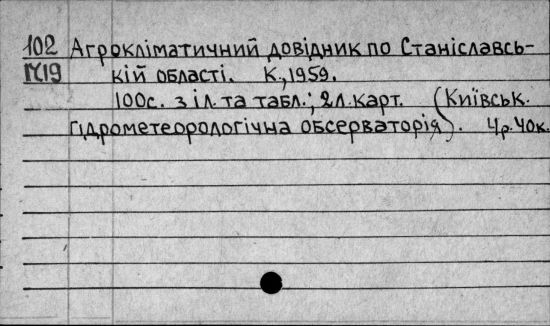 102 Агрокліматичний довідник по Станіславсь-
кій області. К., 1959.
100с. з іл. та табл.; 2л. карт. (Київськ.
гідрометеорологічна обсерваторія). 4р. 40к.